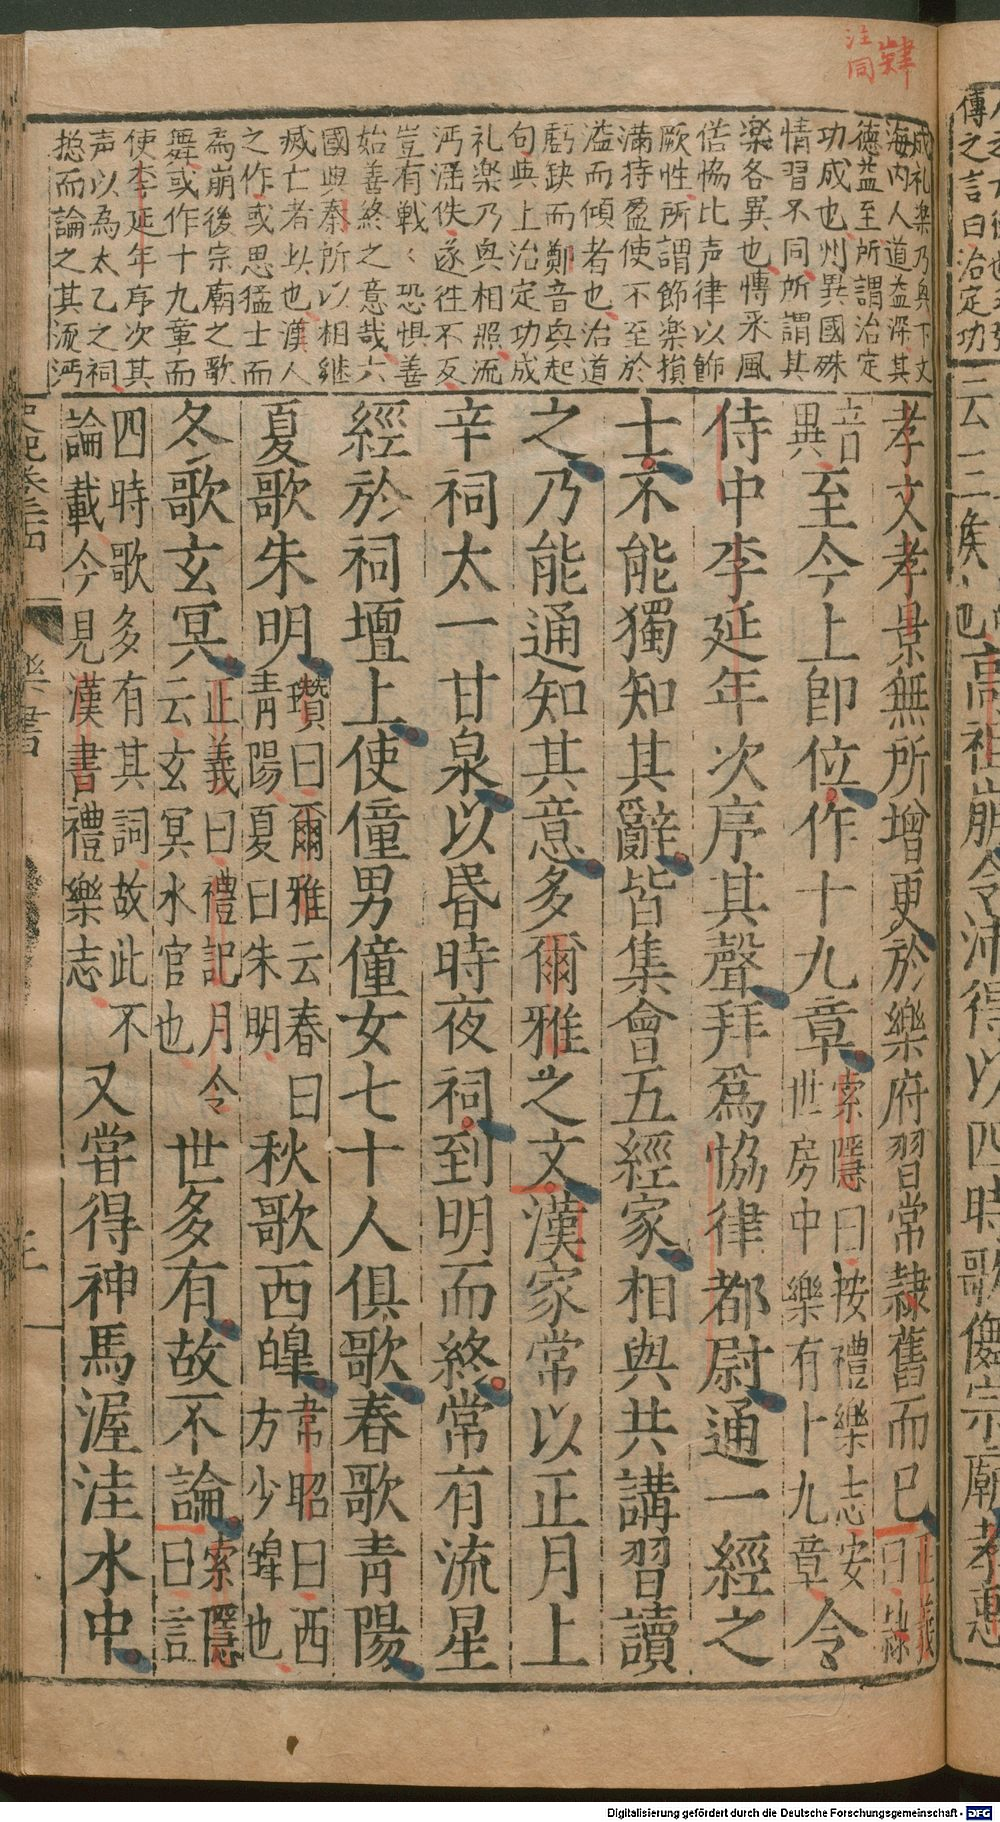 肄
注同
成礼楽乃与下文
海内人道益深其
德益至所謂治定
功成也州異國殊
情習不同所謂其
楽各異也傳采風
偌恊比声律以飾
厥性所謂飾楽損
滿持盈使不至於
溢而傾者也治道
虧缺而鄭音与起
句与上治定功成
礼楽乃与相照流
沔滛佚遂徃不反
豈有戦〻恐惧善
始善終之意哉六
國与秦所以相継
㓕亡者以也漢人
之作或思猛士而
為崩後宗廟之歌
舞或作十九章而
使李延年序次其
声以為太乙之祠
捴而論之其流沔
孝文孝景無所增更於樂府習常隸舊而已 正義曰隸
音異至今上卽位作十九章 索隱曰按禮樂志安世房中樂有十九章 令
侍中李延年次序其聲拜爲協律都尉通一經之
士不能獨知其辭皆集會五經家相與共講習讀
之乃能通知其意多爾雅之文漢家常以正月上
辛祠太一甘泉以昬時夜祠到明而終常有流星
經於祠壇上使僮男僮女七十人俱歌春歌青陽
夏歌朱明 瓚曰爾雅云春曰青陽夏曰朱明 秋歌西皞 韋昭曰西方少皞也
冬歌玄冥 正義曰禮記月令云玄冥水官也 世多有故不論 索隱曰言
四時歌多有其詞故此不論載今見漢書禮樂志 又嘗得神馬渥洼水中
史記卷二十四
樂書
傳之言曰治定功
云三侯 也高祖崩令沛得以四時歌儛宗廟孝惠
Digitalisierung gefördert durch die Deutsche Forschungsgemeinschaft - DFG